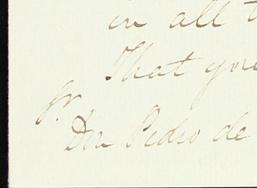 in all t
That you
Don Pedro de